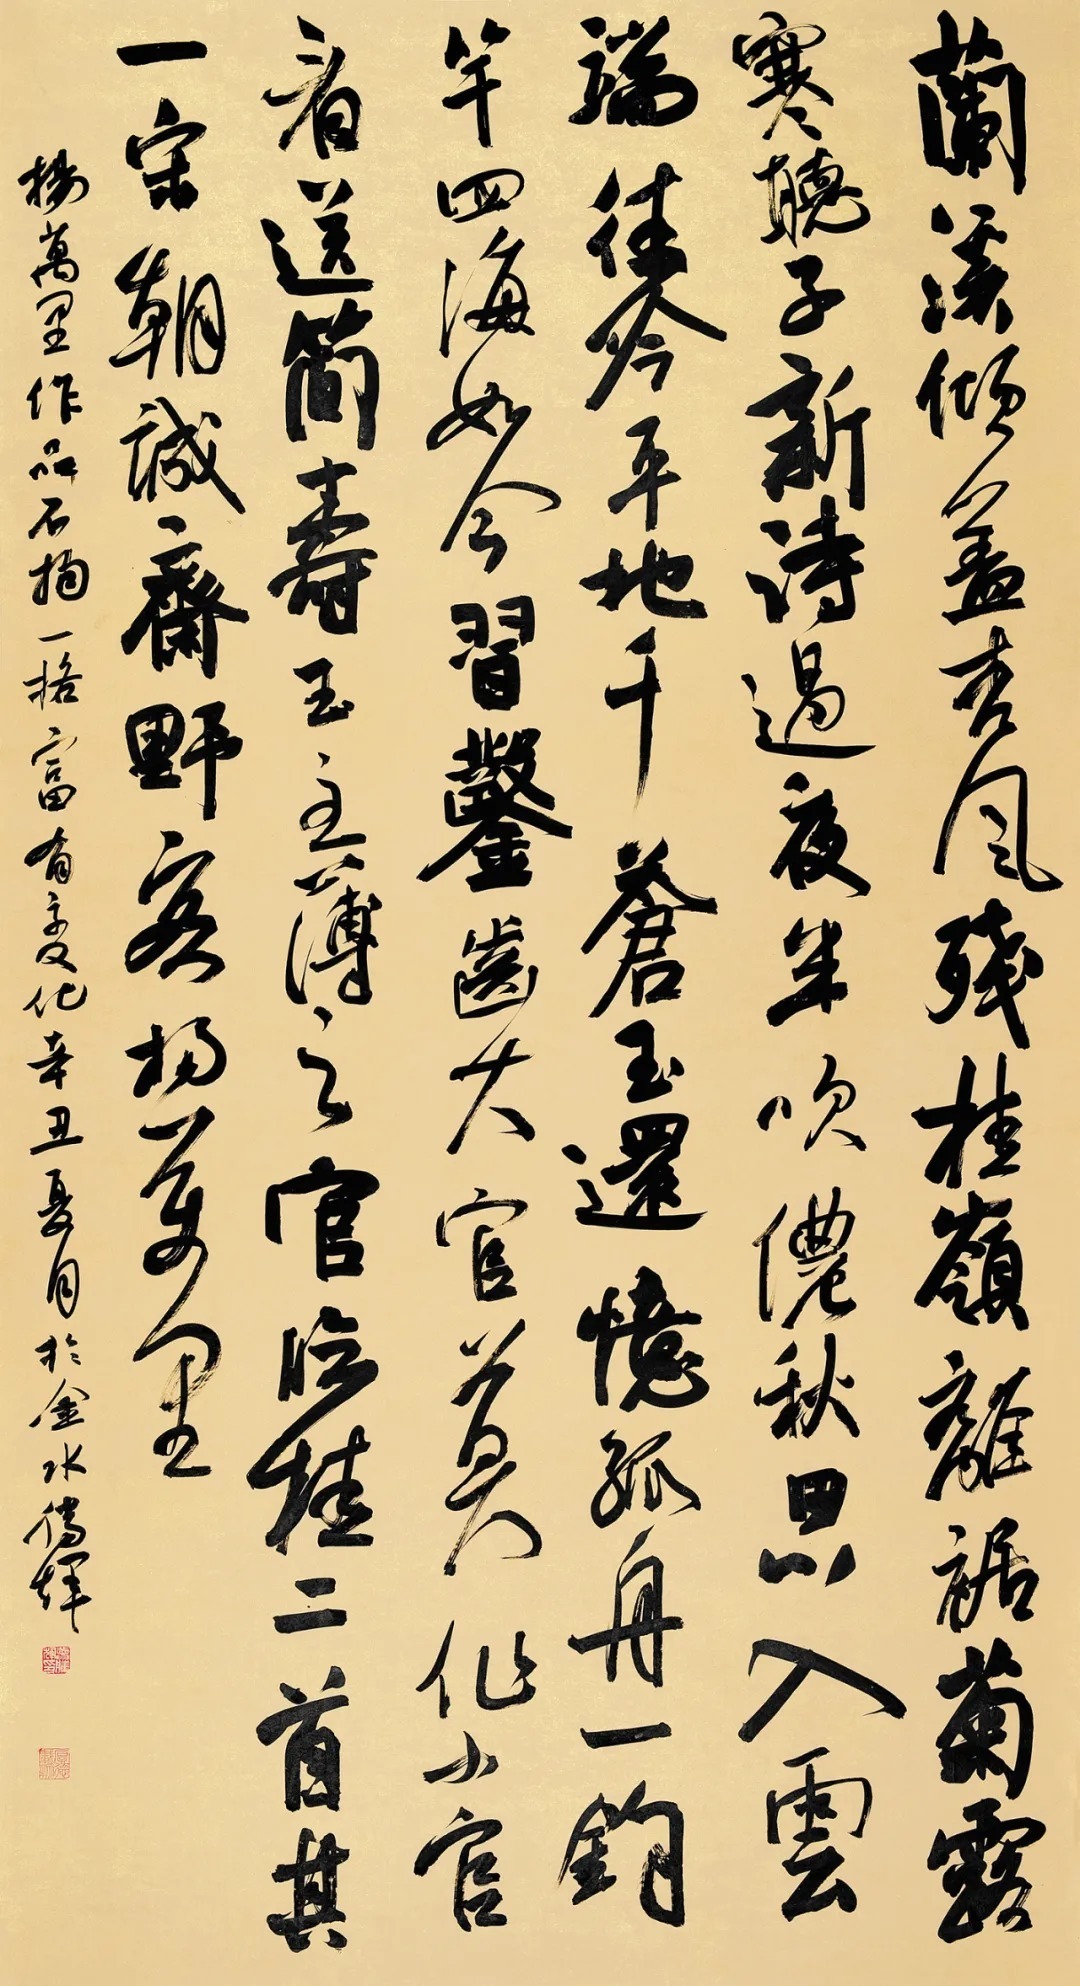 蘭溪傾蓋杏風殘桂嶺離裾菊露
寒聽子新詩過夜半吹儂秋思入雲
端佳琴平地千蒼玉還憶孤舟一釣
竿四海如今習鑿齒大官莫作小官
看送簡壽玉主薄之官臨桂二首其
一宋朝誠齋野客楊萬里
楊萬里作品不拘一格富有變化辛丑夏月於金水勝輝